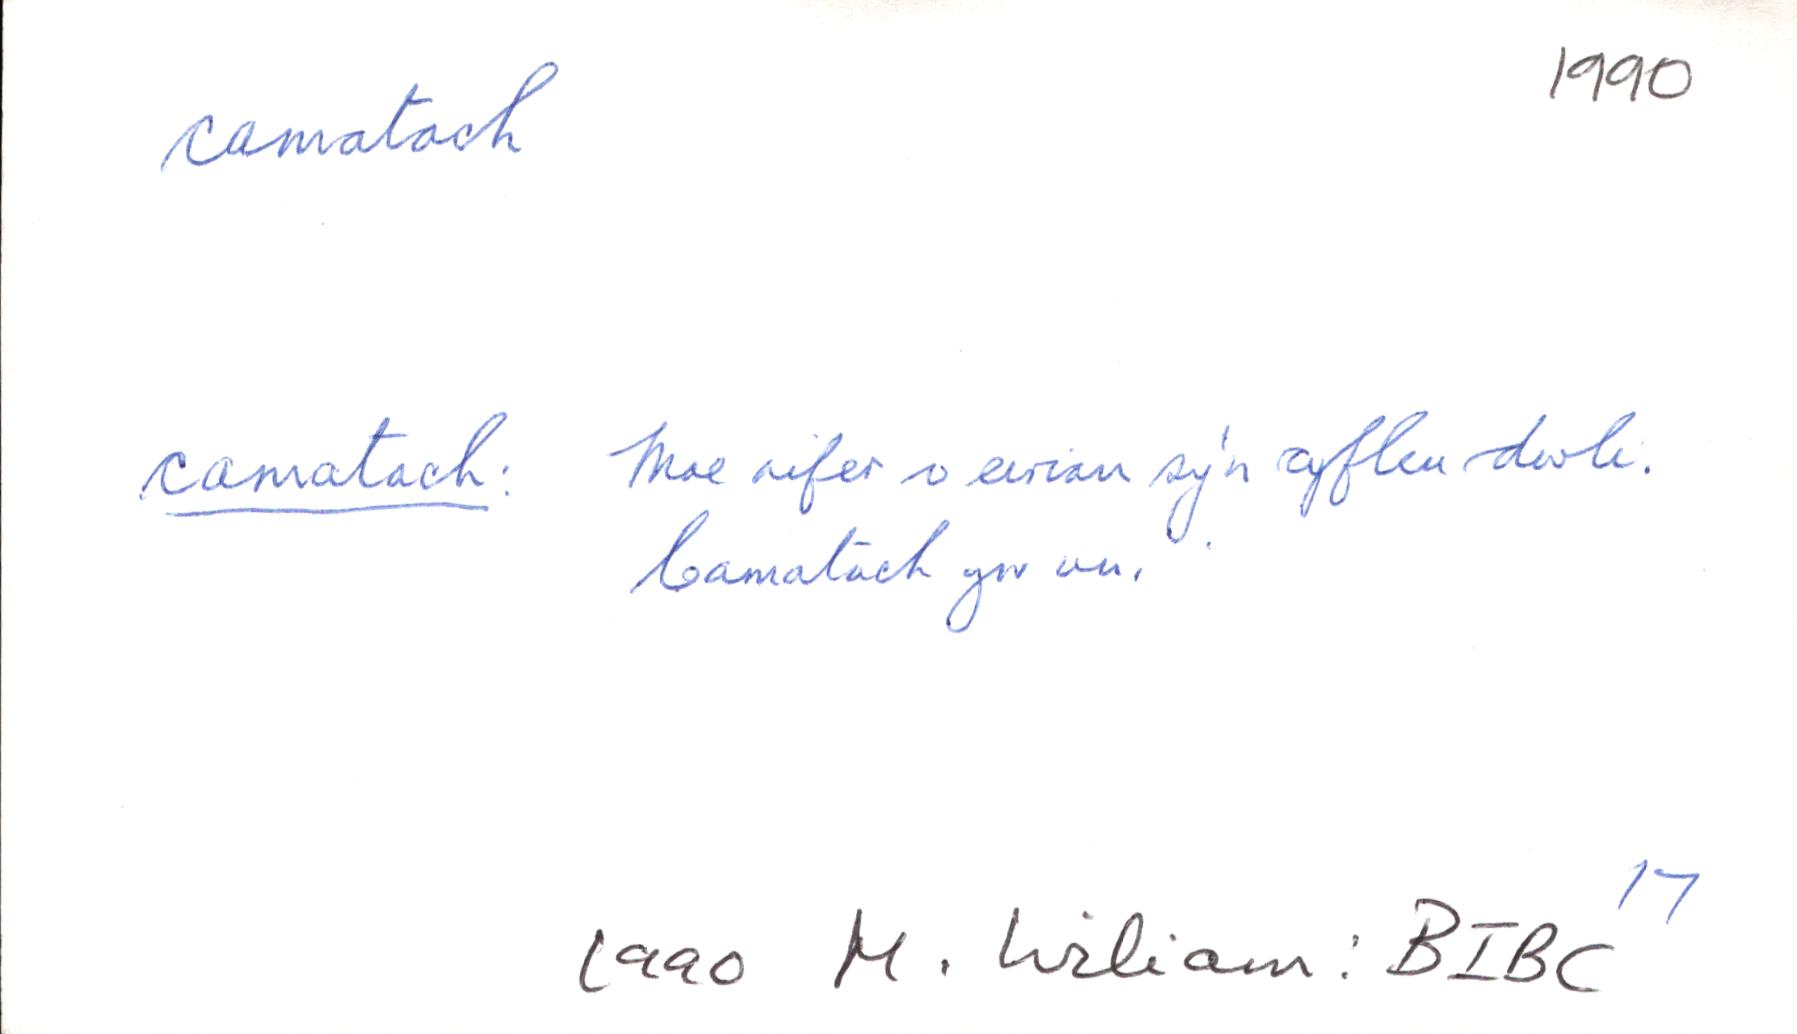 camatach
1990
camatach: Mae nifer o eiriau sy'n cyfleu dwli.
Camatach yw un.
17
1990 M. Wiliam: BIBC